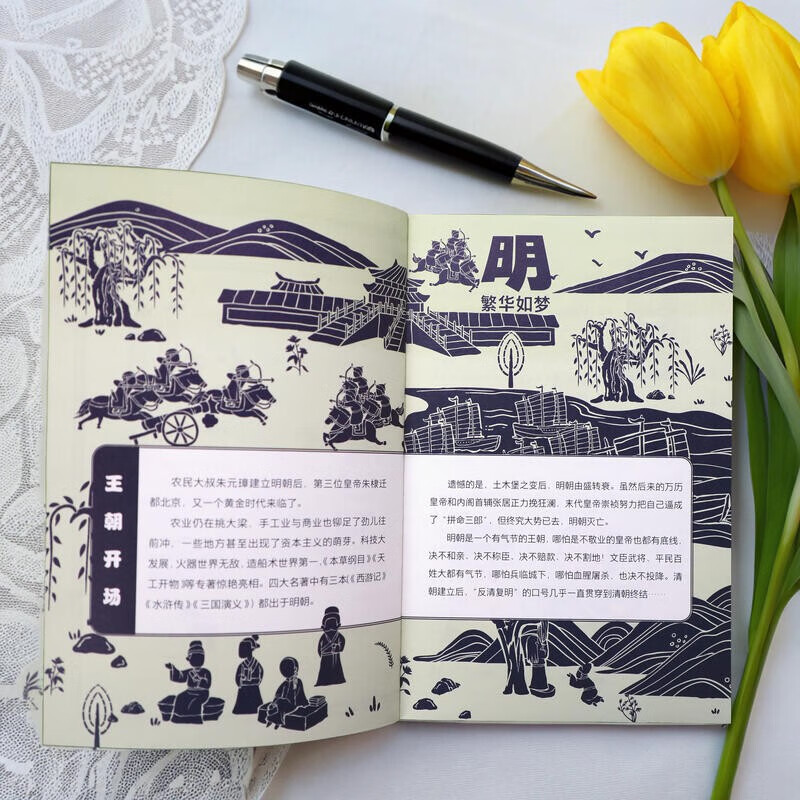 明
繁华如梦
王朝开场
农民大叔朱元璋建立明朝后，第三位皇帝朱棣迁
都北京，又一个黄金时代来临了。
农业仍在挑大梁，手工业与商业也铆足了劲儿往
前冲，一些地方甚至出现了资本主义的萌芽。科技大
发展，火器世界无敌，造船术世界第一，《本草纲目》《天
工开物》等专著惊艳亮相。四大名著中有三本(《西游记》
《水浒传》《三国演义》）都出于明朝。
遗憾的是，土木堡之变后，明朝由盛转衰。虽然后来的万历
皇帝和内阁首辅张居正力挽狂澜，末代皇帝崇祯努力把自己逼成
了“拼命三郎”，但终究大势已去，明朝灭亡。
明朝是一个有气节的王朝，哪怕是不敬业的皇帝也都有底线，
决不和亲、决不称臣、决不赔款、决不割地！文臣武将、平民百
姓大都有气节，哪怕兵临城下，哪怕血腥屠杀，也决不投降。清
朝建立后，“反清复明”的口号几乎一直贯穿到清朝终结……